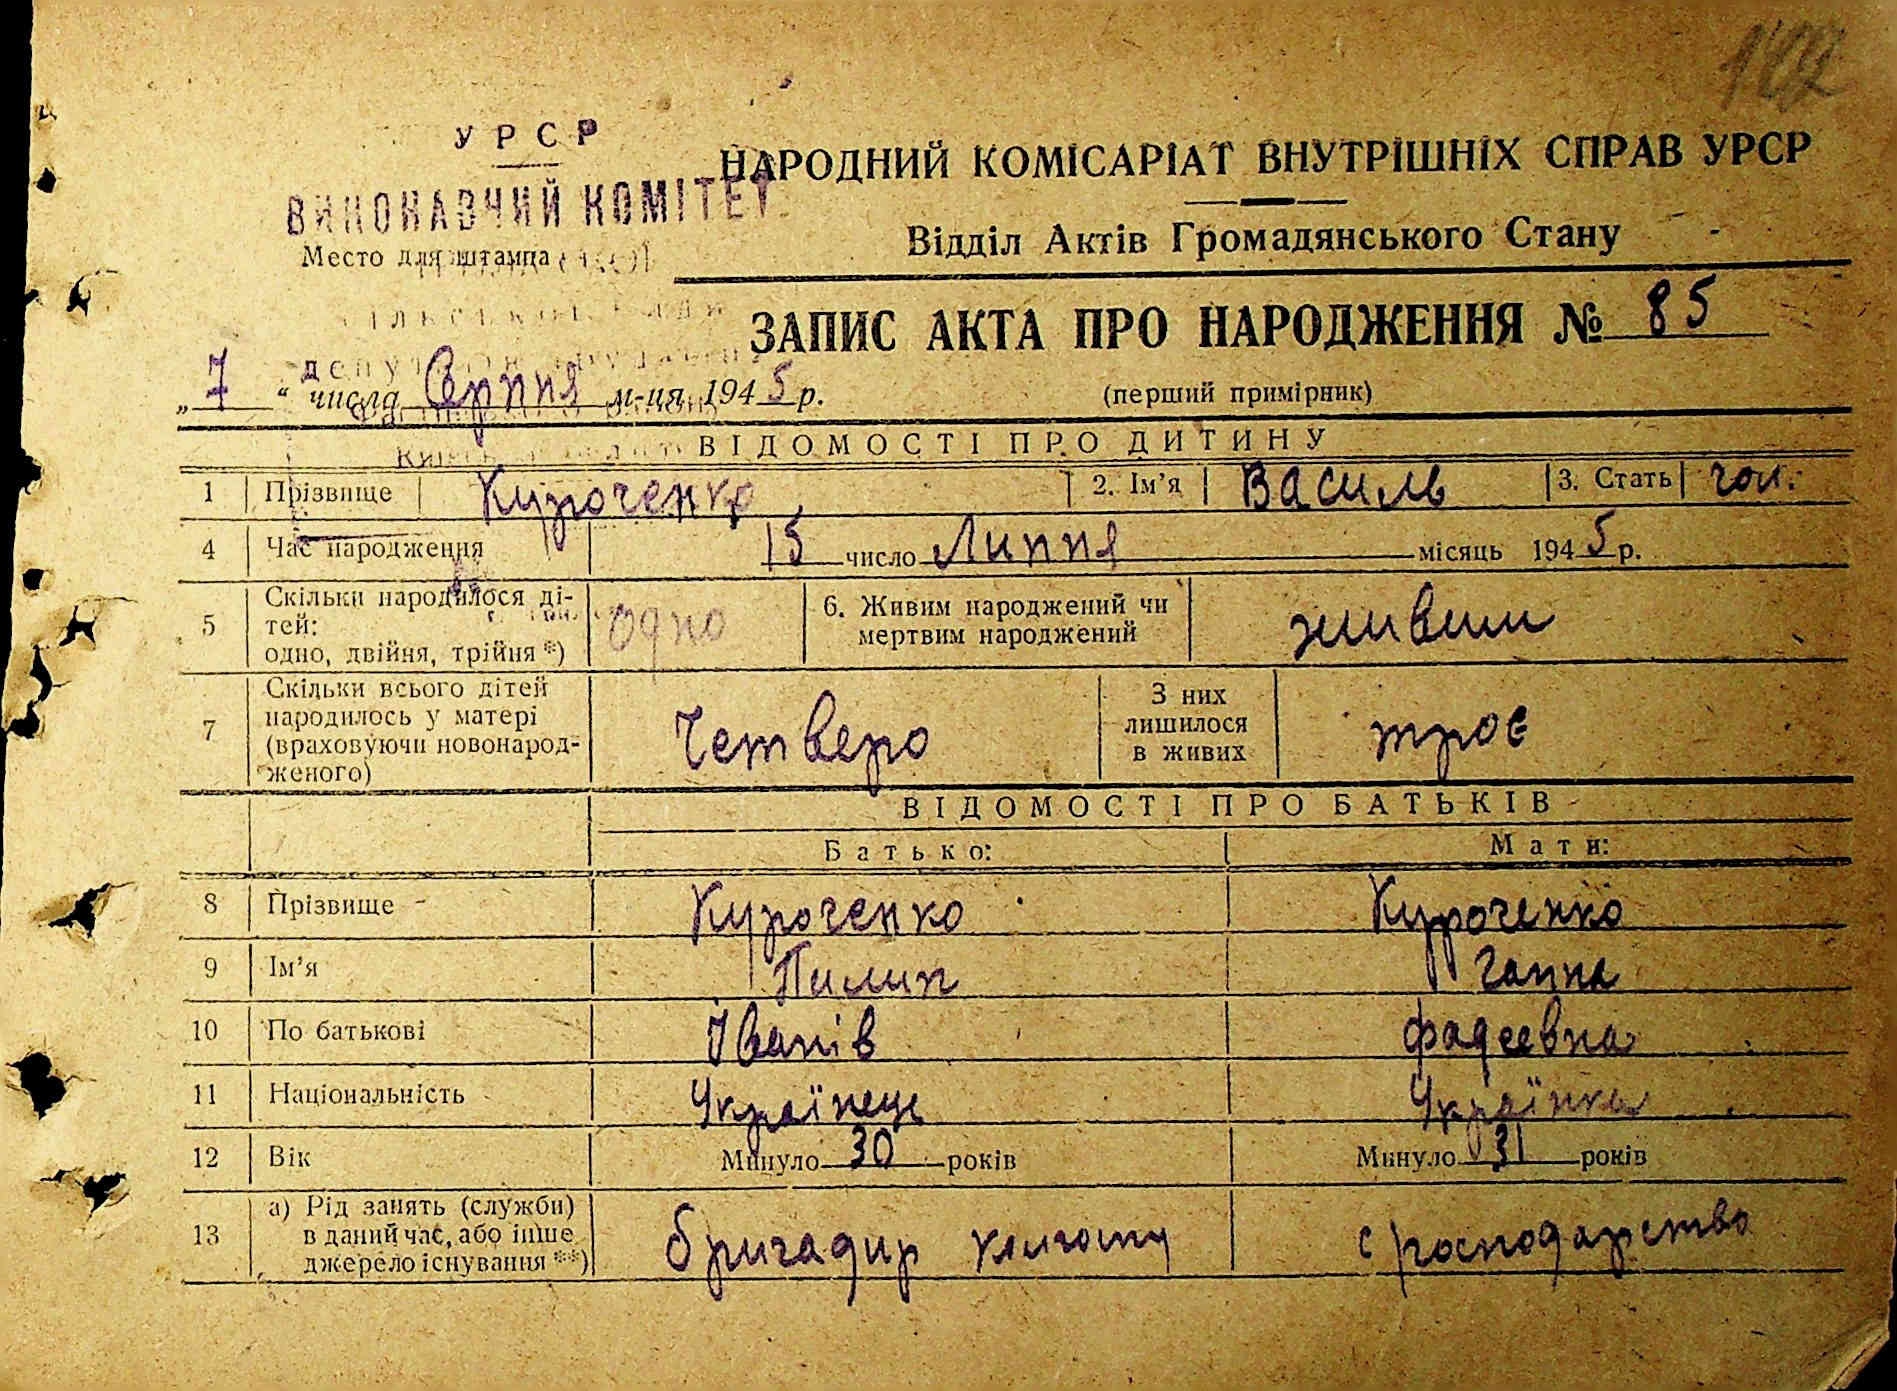 142
УРСР
ВИКОНАВЧИЙ КОМІТЕТ
Место для штампа
НАРОДНИЙ КОМІСАРІАТ ВНУТРІШНІХ СПРАВ УРСР
Відділ Актів Громадянського Стану
ЗАПИС АКТА ПРО НАРОДЖЕННЯ № 85
„7“ числа Серпня м-ця 1945 р.
(перший примірник)
ВІДОМОСТІ ПРО ДИТИНУ
1 Прізвище Куроченко 2. Ім'я Василь 3. Стать чол.
4 Час народження 15 число Липня місяць 1945 р.
5 Скільки народилося ді-
тей:
одно, двійня, трійня *) одно
6. Живим народжений чи
мертвим народжений живим
7 Скільки всього дітей
народилось у матері
(враховуючи новонарод-
женого) Четверо
З них
лишилося
в живих троє
ВІДОМОСТІ ПРО БАТЬКІВ
Батько: Мати:
8 Прізвище Куроченко Куроченко
9 Ім'я Пилип Ганна
10 По батькові Іванів Фадеевна
11 Національність Українець Українка
12 Вік Минуло 30 років Минуло 31 років
13 а) Рід занять (служби)
в даний час, або інше
джерело існування **) бригадир колгоспу с господарство